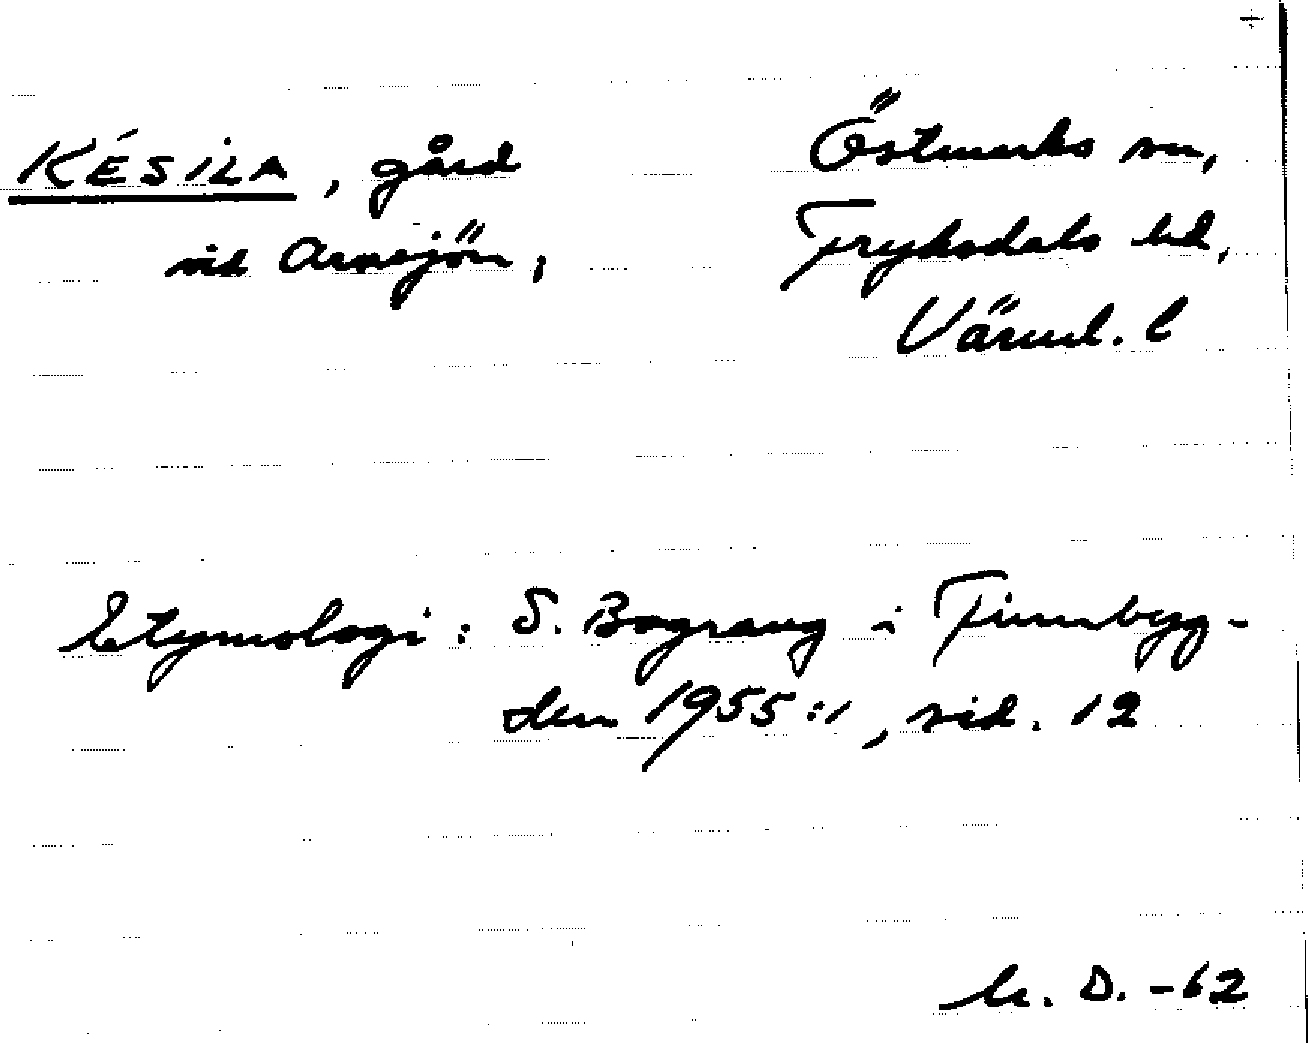 KÉSILA, gård
vid Arnsjön,
Östmarks sn,
Fryksdals hd,
Värml. l
Etymologi: S. Bograng i Finnbyg-
den 1955:1, sid. 12
D. -62